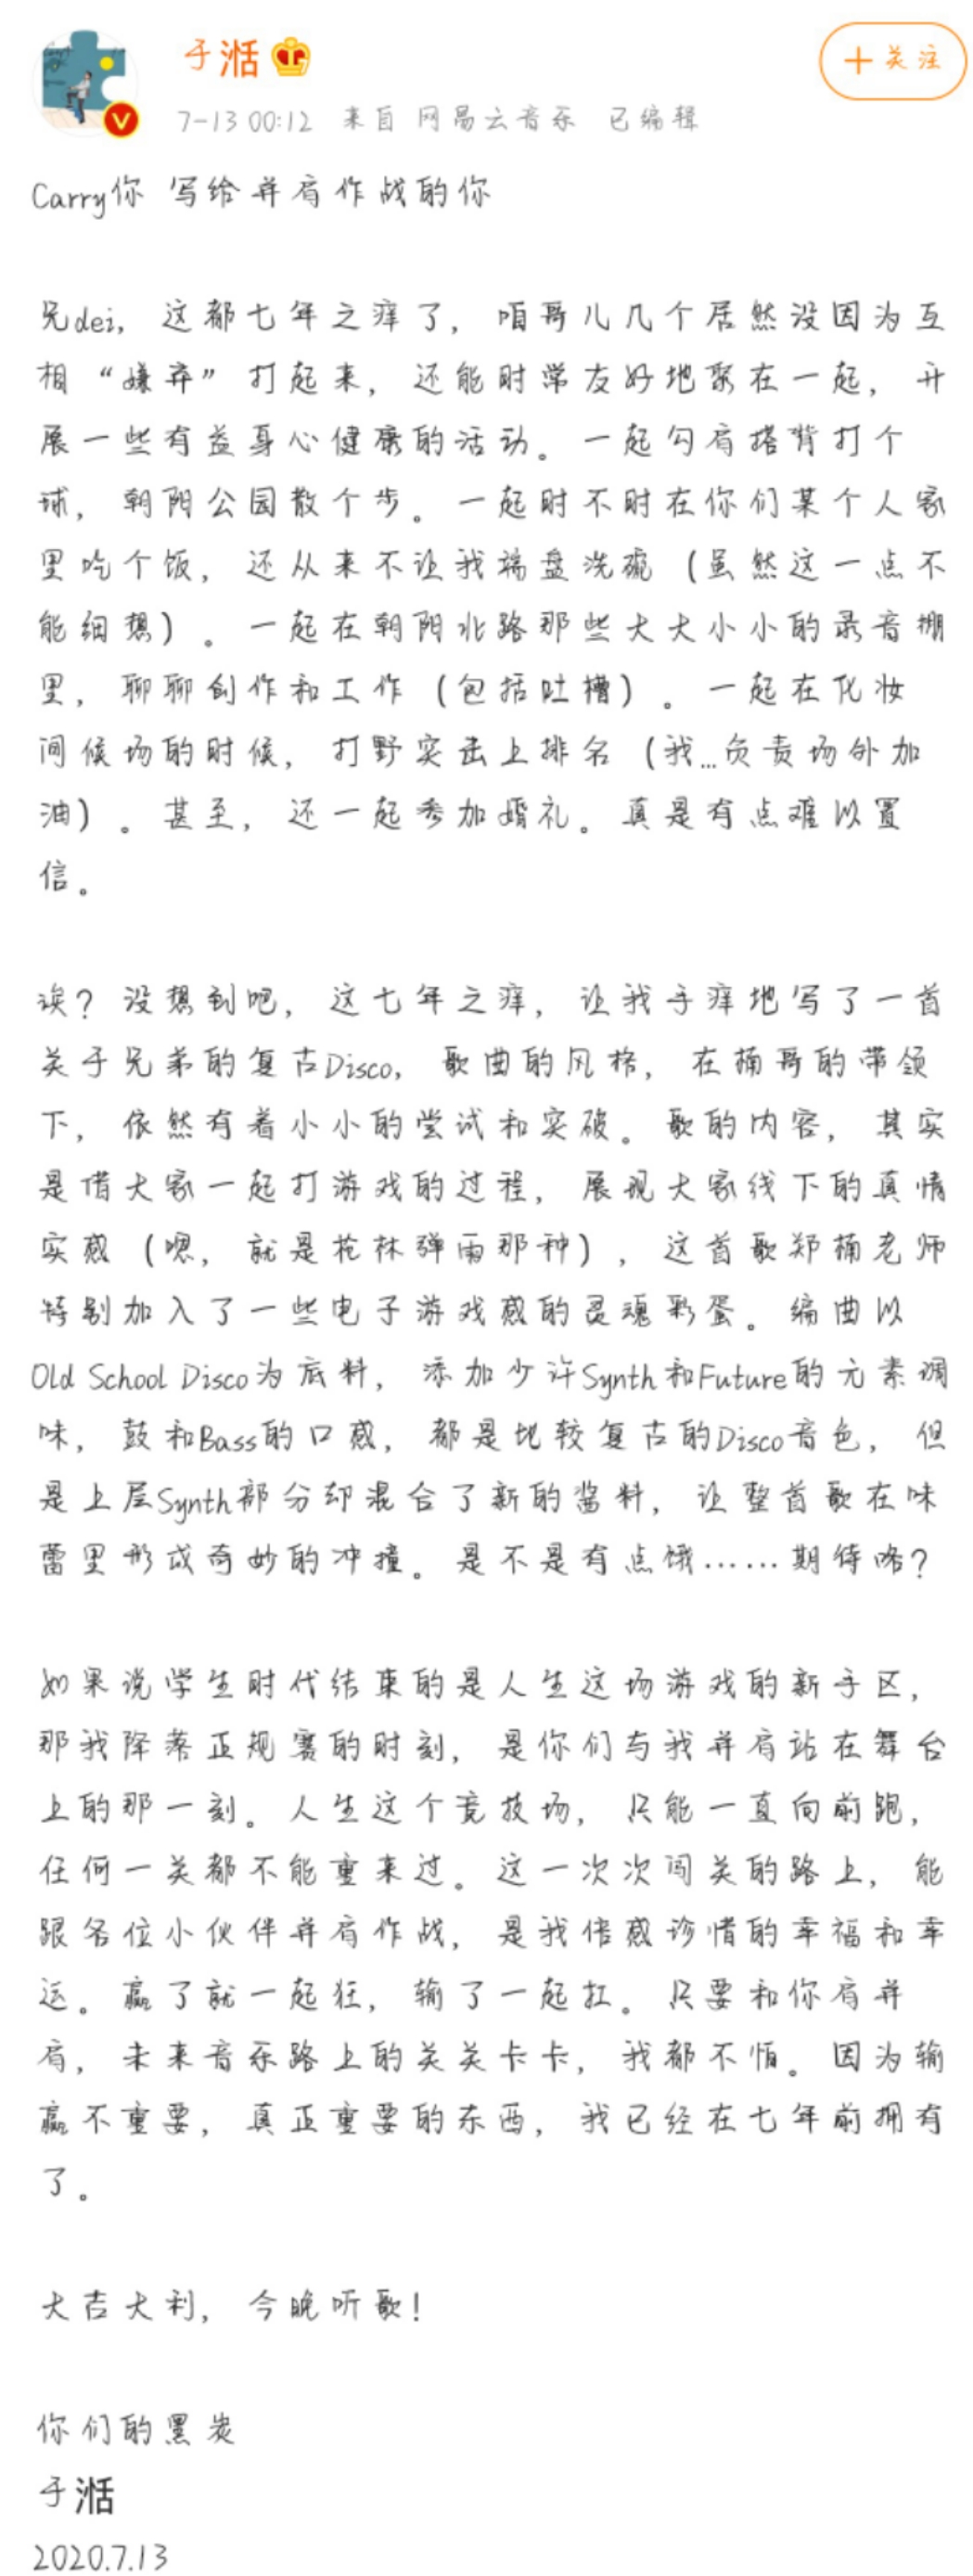 于湉
+关注
7-13 00:12 来自 网易云音乐 已编辑
Carry你 写给并肩作战的你
兄dei，这都七年之痒了，咱哥儿几个居然没因为互
相“嫌弃”打起来，还能时常友好地聚在一起，开
展一些有益身心健康的活动。一起勾肩搭背打个
球，朝阳公园散个步。一起时不时在你们某个人家
里吃个饭，还从来不让我端盘洗碗（虽然这一点不
能细想）。一起在朝阳北路那些大大小小的录音棚
里，聊聊创作和工作（包括吐槽）。一起在化妆
间候场的时候，打野突击上排名（我...负责场外加
油）。甚至，还一起参加婚礼。真是有点难以置
信。
诶？没想到吧，这七年之痒，让我手痒地写了一首
关于兄弟的复古Disco，歌曲的风格，在楠哥的带领
下，依然有着小小的尝试和突破。歌的内容，其实
是借大家一起打游戏的过程，展现大家线下的真情
实感（嗯，就是枪林弹雨那种），这首歌郑楠老师
特别加入了一些电子游戏感的灵魂彩蛋。编曲以
Old School Disco为底料，添加少许Synth和Future的元素调
味，鼓和Bass的口感，都是比较复古的Disco音色，但
是上层Synth部分却混合了新的酱料，让整首歌在味
蕾里形成奇妙的冲撞。是不是有点饿……期待咯？
如果说学生时代结束的是人生这场游戏的新手区，
那我降落正规赛的时刻，是你们与我并肩站在舞台
上的那一刻。人生这个竞技场，只能一直向前跑，
任何一关都不能重来过。这一次次闯关的路上，能
跟各位小伙伴并肩作战，是我倍感珍惜的幸福和幸
运。赢了就一起狂，输了一起扛。只要和你肩并
肩，未来音乐路上的关关卡卡，我都不怕。因为输
赢不重要，真正重要的东西，我已经在七年前拥有
了。
大吉大利，今晚听歌！
你们的黑炭
于湉
2020.7.13